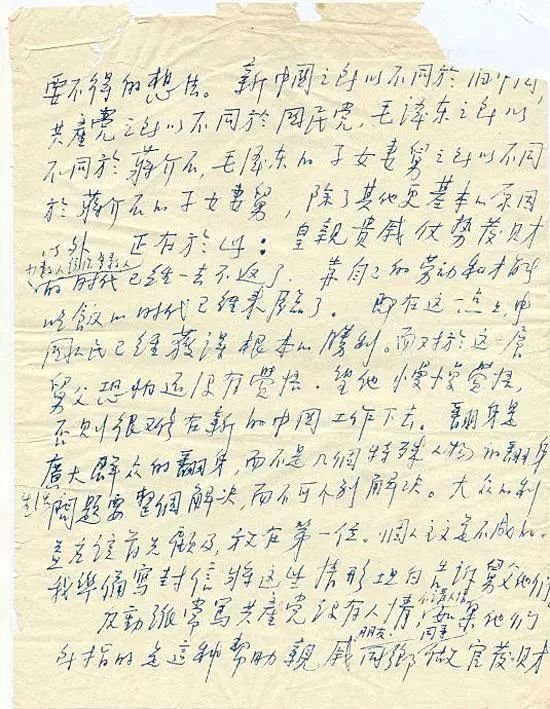 要不得的想法。新中國之所以不同於旧中国,
共產党之所以不同於国民党,毛泽东之所以
不同於蒋介石,毛泽东的子女妻舅之所以不同
於蒋介石的子女妻舅,除了其他更基本的原因
以外,正在於此:皇親貴戚仗势发财
少数人统治多数人
的时代已经一去不返了。靠自己的劳动和才能
吃飯的时代已經来臨了。在这一点上,中
国人民已經獲得根本的勝利。而对於这一層
舅父恐怕还没有覺悟。望他慢慢覺悟,
否则很难在新的中國工作下去。翻身是
廣大群众的翻身,而不是几個特殊人物的翻身
生活問題要整個解决,而不可个别解决。大众的利
益应該首先顧及,放在第一位。個人主义是不成的。
我準備寫封信将这些情形坦白告訴舅父他们
不讲人情
反動派常罵共產党没有人情,如果他们
朋友 同事
所指的是这种帮助親戚同鄉做官发财